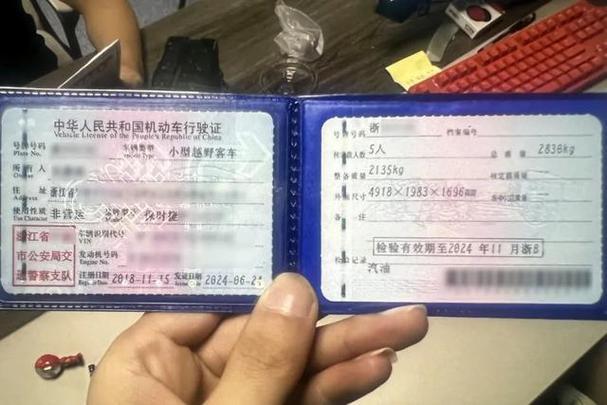 中华人民共和国机动车行驶证
Vehicle License of the People's Republic of China
号牌号码
Plate No.
车辆类型 小型越野客车
Vehicle Type
所有人
Owner
住址 浙江省
Address
使用性质 非营运 保时捷
Use Character
浙江省
市公安局交
通警察支队
车辆识别代号
VIN
发动机号码
Engine No.
注册日期 2018-11-15 发证日期 2024-06-24
Register Date Issue Date
号牌号码 浙
档案编号
核定载人数 5人 总质量 2836kg
整备质量 2135kg 核定载质量
外廓尺寸 4918×1983×1696mm
备注
检验有效期至2024年11月浙B
检验记录
汽油